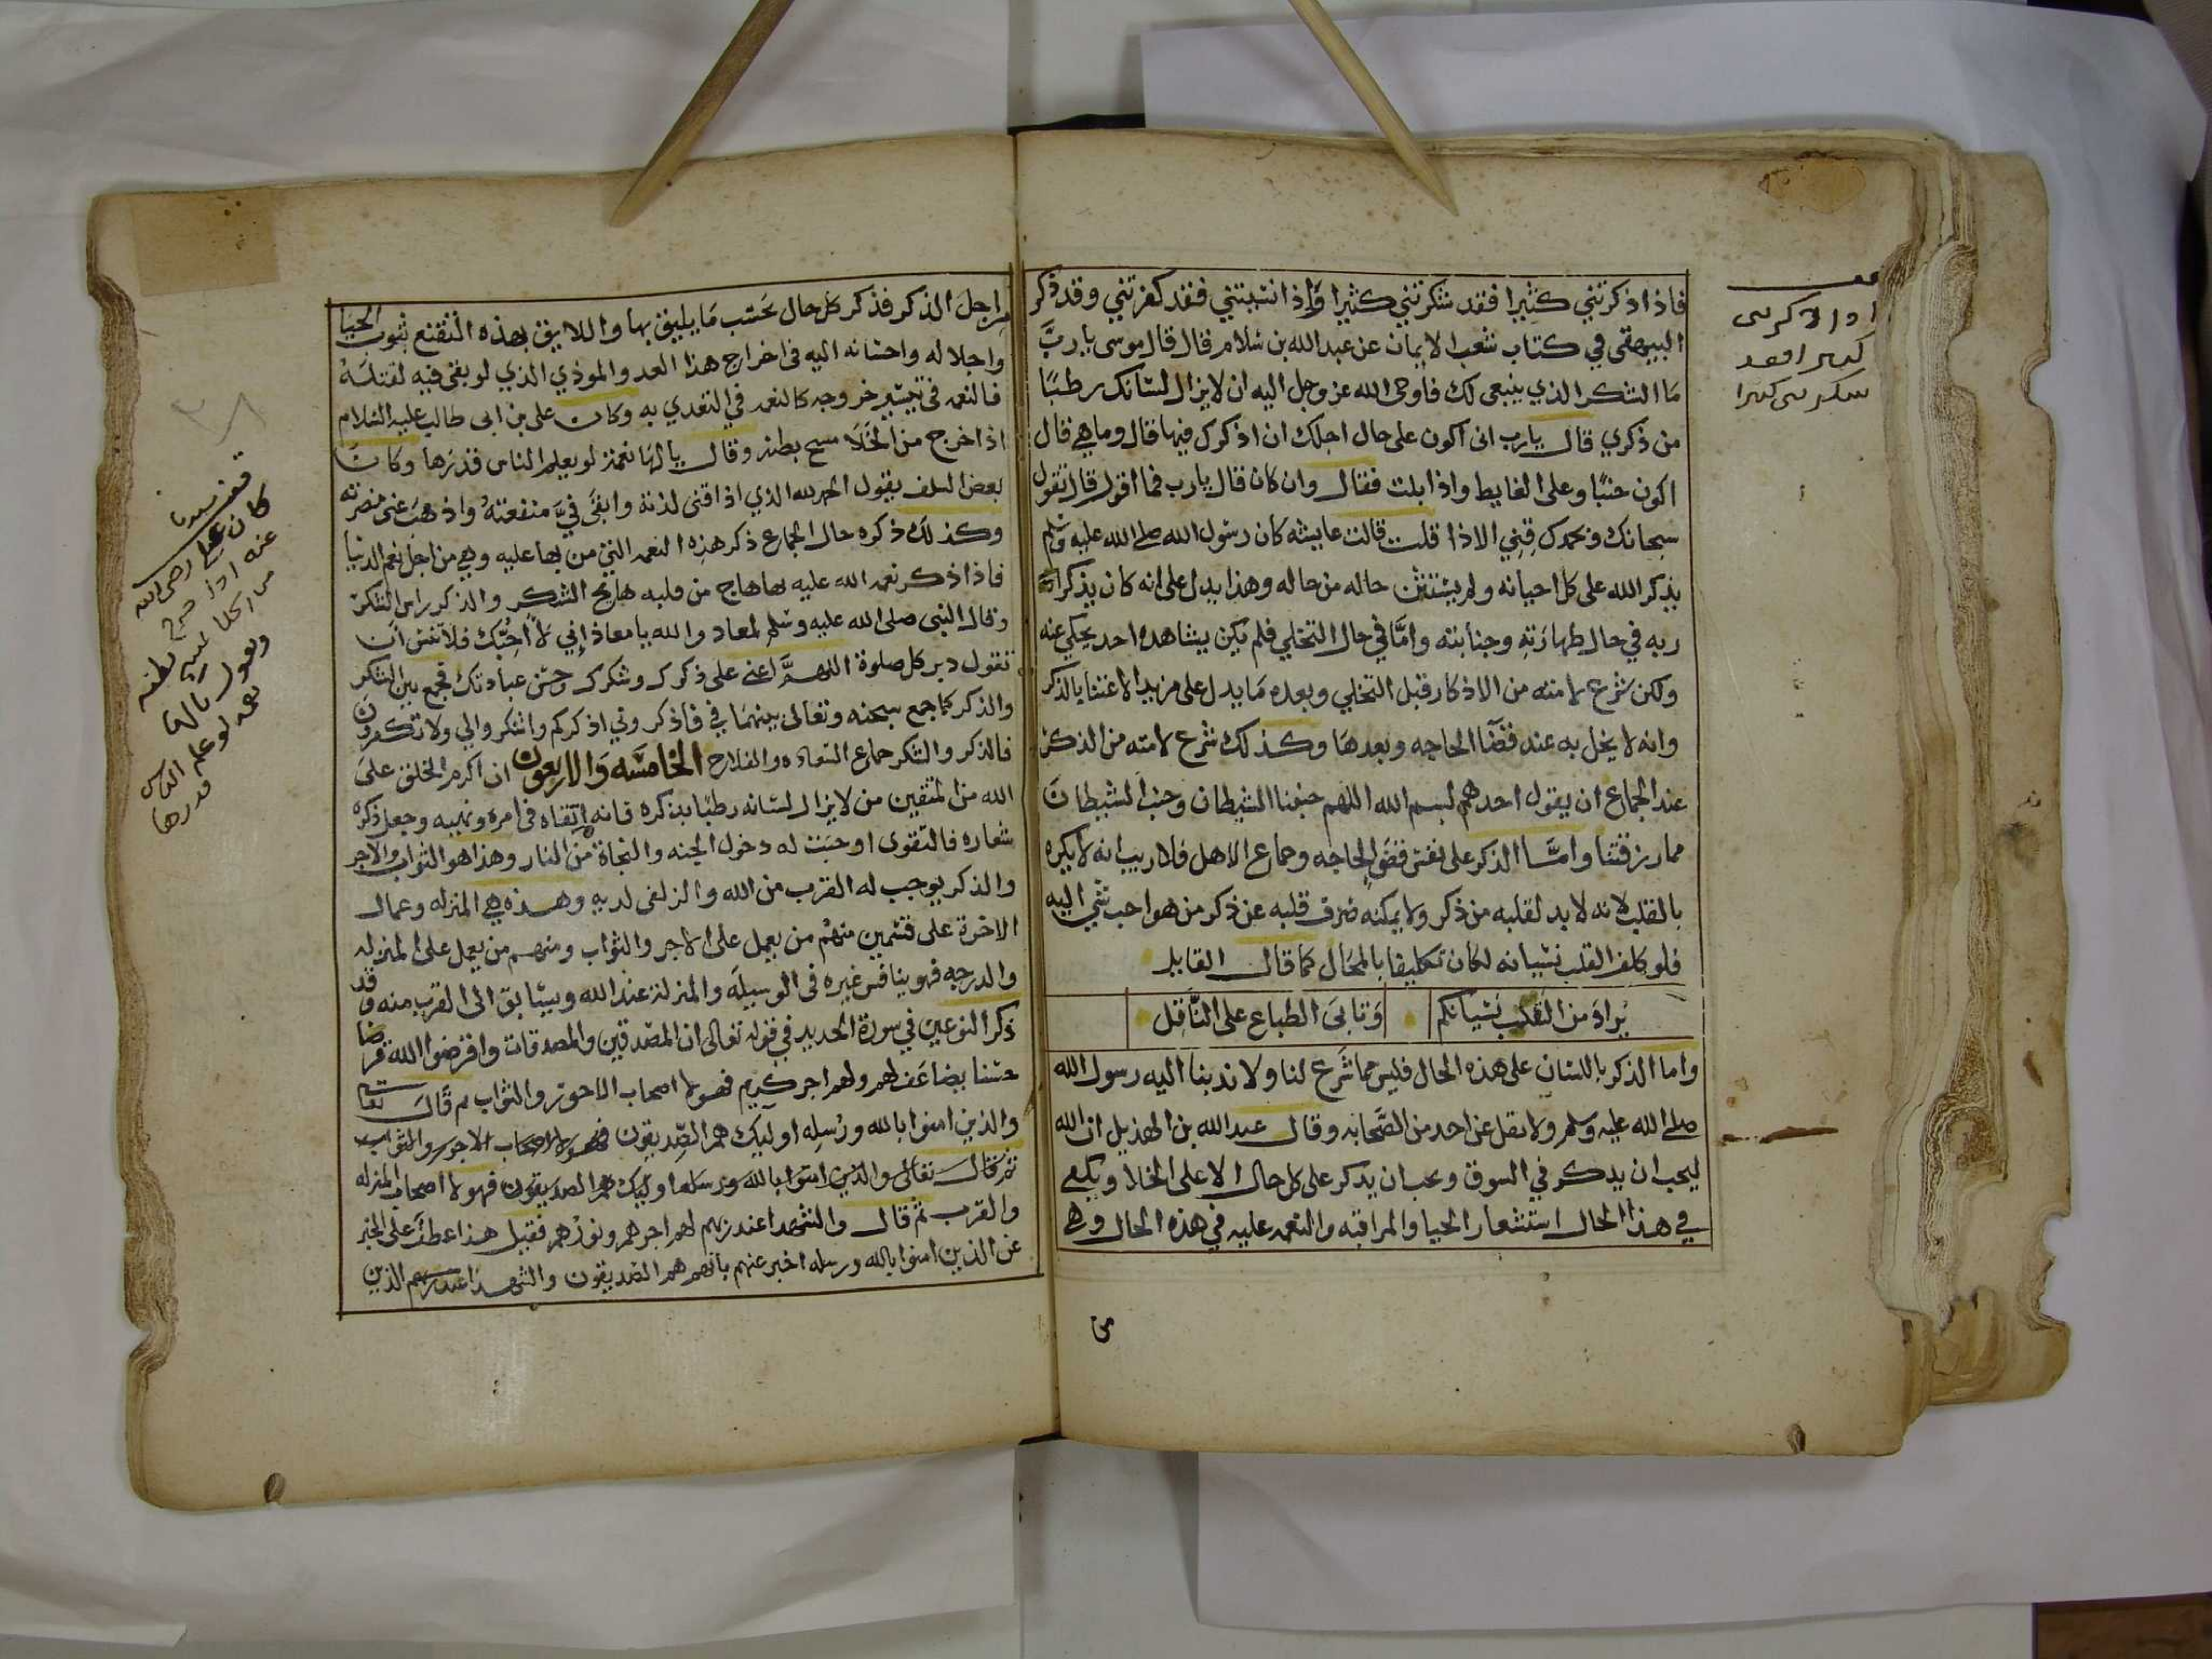 فاذا ذكرتني كثيرا فقد شكرتني كثيرا واذا نسيتني فقد كفرتني وقد ذكر
البيهقي في كتاب شعب الايمان عن عبدالله بن سلام قال قال موسى يارب
ما الشكر الذي ينبغي لك فاوحى الله عز وجل اليه ان لا يزال لسانك رطبا
من ذكري قال يارب اني اكون على حال اجلك ان اذكرك فيها قال وما هي قال
اكون جنبا وعلى الغايط واذا بلت فقال وان كان قال يارب فما اقول قال تقول
سبحانك وبحمدك قني الاذا قلت قالت عايشه كان رسول الله صلى الله عليه وسلم
يذكر الله على كل احيانه ولم يستثن حاله من حاله وهذا يدل على انه كان يذكر
ربه في حال طهارته وجنابته وامّا في حال التخلي فلم يكن يشاهده احد يحكي عنه
ولكن شرع لامته من الاذكار قبل التخلي وبعده ما يدل على مزيد الاعتنا بالذكر
وانه لا يخل به عند قضا الحاجه وبعدها وكذلك شرع لامته من الذكر
عند الجماع ان يقول احدهم بسم الله اللهم جنبنا الشيطان وجنب الشيطان
مما رزقتنا وامّا الذكر على نفس قضا الحاجه وجماع الاهل فلا ريب انه لا يكره
بالقلب لانه لا بد لقلبه من ذكر ولا يمكنه صرف قلبه عن ذكر من هو احب شي اليه
فلو كلف القلب نسيانه لكان تكليفا بالمحال كما قال القايل
يراد من القلب نسيانكم وتابى الطباع على الناقل
واما الذكر باللسان على هذه الحال فليس مما شرع لنا ولا ندبنا اليه رسول الله
صلى الله عليه وسلم ولا نقل عن احد من الصحابه وقال عبد الله بن الهذيل ان الله
ليحب ان يذكر في السوق ويحب ان يذكر على كل حال الا على الخلا ويكفي
في هذا الحال استشعار الحيا والمراقبه والنعمه عليه في هذه الحال وهي
من
اذا ذكرتني
كثيرا فقد
شكرتني كثيرا
من اجل الذكر فذكر كل حال بحسب ما يليق بها واللايق بهذه التقنع بثوب الحيا
واجلاله واحسانه اليه في اخراج هذا العدو الموذي الذي لو بقى فيه لقتله
فالنعمه في تيسير خروجه كالنعمه في التغدي به وكان على بن ابى طالب عليه السلام
اذا خرج من الخلا مسح بطنه وقال يالها نعمه لو يعلم الناس قدرها وكان
بعض السلف يقول الحمد لله الذي اذاقنى لذته وابقى فيّ منفعته واذهب عنى مضرته
وكذلك ذكره حال الجماع ذكر هذه النعمه التى من بها عليه وهي من اجل نعم الدنيا
فاذا ذكر نعمه الله عليه بها هاج من قلبه هايج الشكر والذكر راس الشكر
وقال النبى صلى الله عليه وسلم لمعاذ والله يا معاذ اني لاحبك فلا تنس ان
تقول دبر كل صلوة اللهم اعني على ذكرك وشكرك وحسن عبادتك فجمع بين الشكر
والذكر كما جمع سبحنه وتعالى بينهما في فاذكروني اذكركم واشكروا لي ولا تكفرون
فالذكر والشكر جماع السعاده والفلاح الخامسه والاربعون ان اكرم الخلق على
الله من المتقين من لا يزال لسانه رطبا بذكره فانه اتقاه في امره ونهييه وجعل ذكره
شعاره فالتقوى اوجبت له دخول الجنه والنجاة من النار وهذا هو الثواب والاجر
والذكر يوجب له القرب من الله والزلفى لديه وهذه هي المنزله وعمال
الاخرة على قسمين منهم من يعمل على الاجر والثواب ومنهم من يعمل على المنزله
والدرجه فهو ينافس غيره في الوسيله والمنزلة عند الله ويسابق الى القرب منه وقد
ذكر النوعين في سورة الحديد في قوله تعالى ان المصدقين والمصدقات واقرضوا الله قرضا
حسنا يضاعف لهم ولهم اجر كريم فهولا اصحاب الاجور والثواب ثم قال تعالى
والذين امنوا بالله ورسله اوليك هم الصديقون فهولا اصحاب الاجور والثواب
ثم قال تعالى والذين امنوا بالله ورسله اوليك هم الصديقون فهولا اصحاب المنزله
والقرب ثم قال والشهدا عند ربهم لهم اجرهم ونورهم فقيل هذا عطف على الخبر
عن الذين امنوا بالله ورسله اخبر عنهم بانهم هم الصديقون والشهدا عند ربهم الذين
كان علي رضى الله
عنه اذا خرج
من الخلا مسح بطنه
ويقول يالها
نعمه لو علم الناس
قدرها